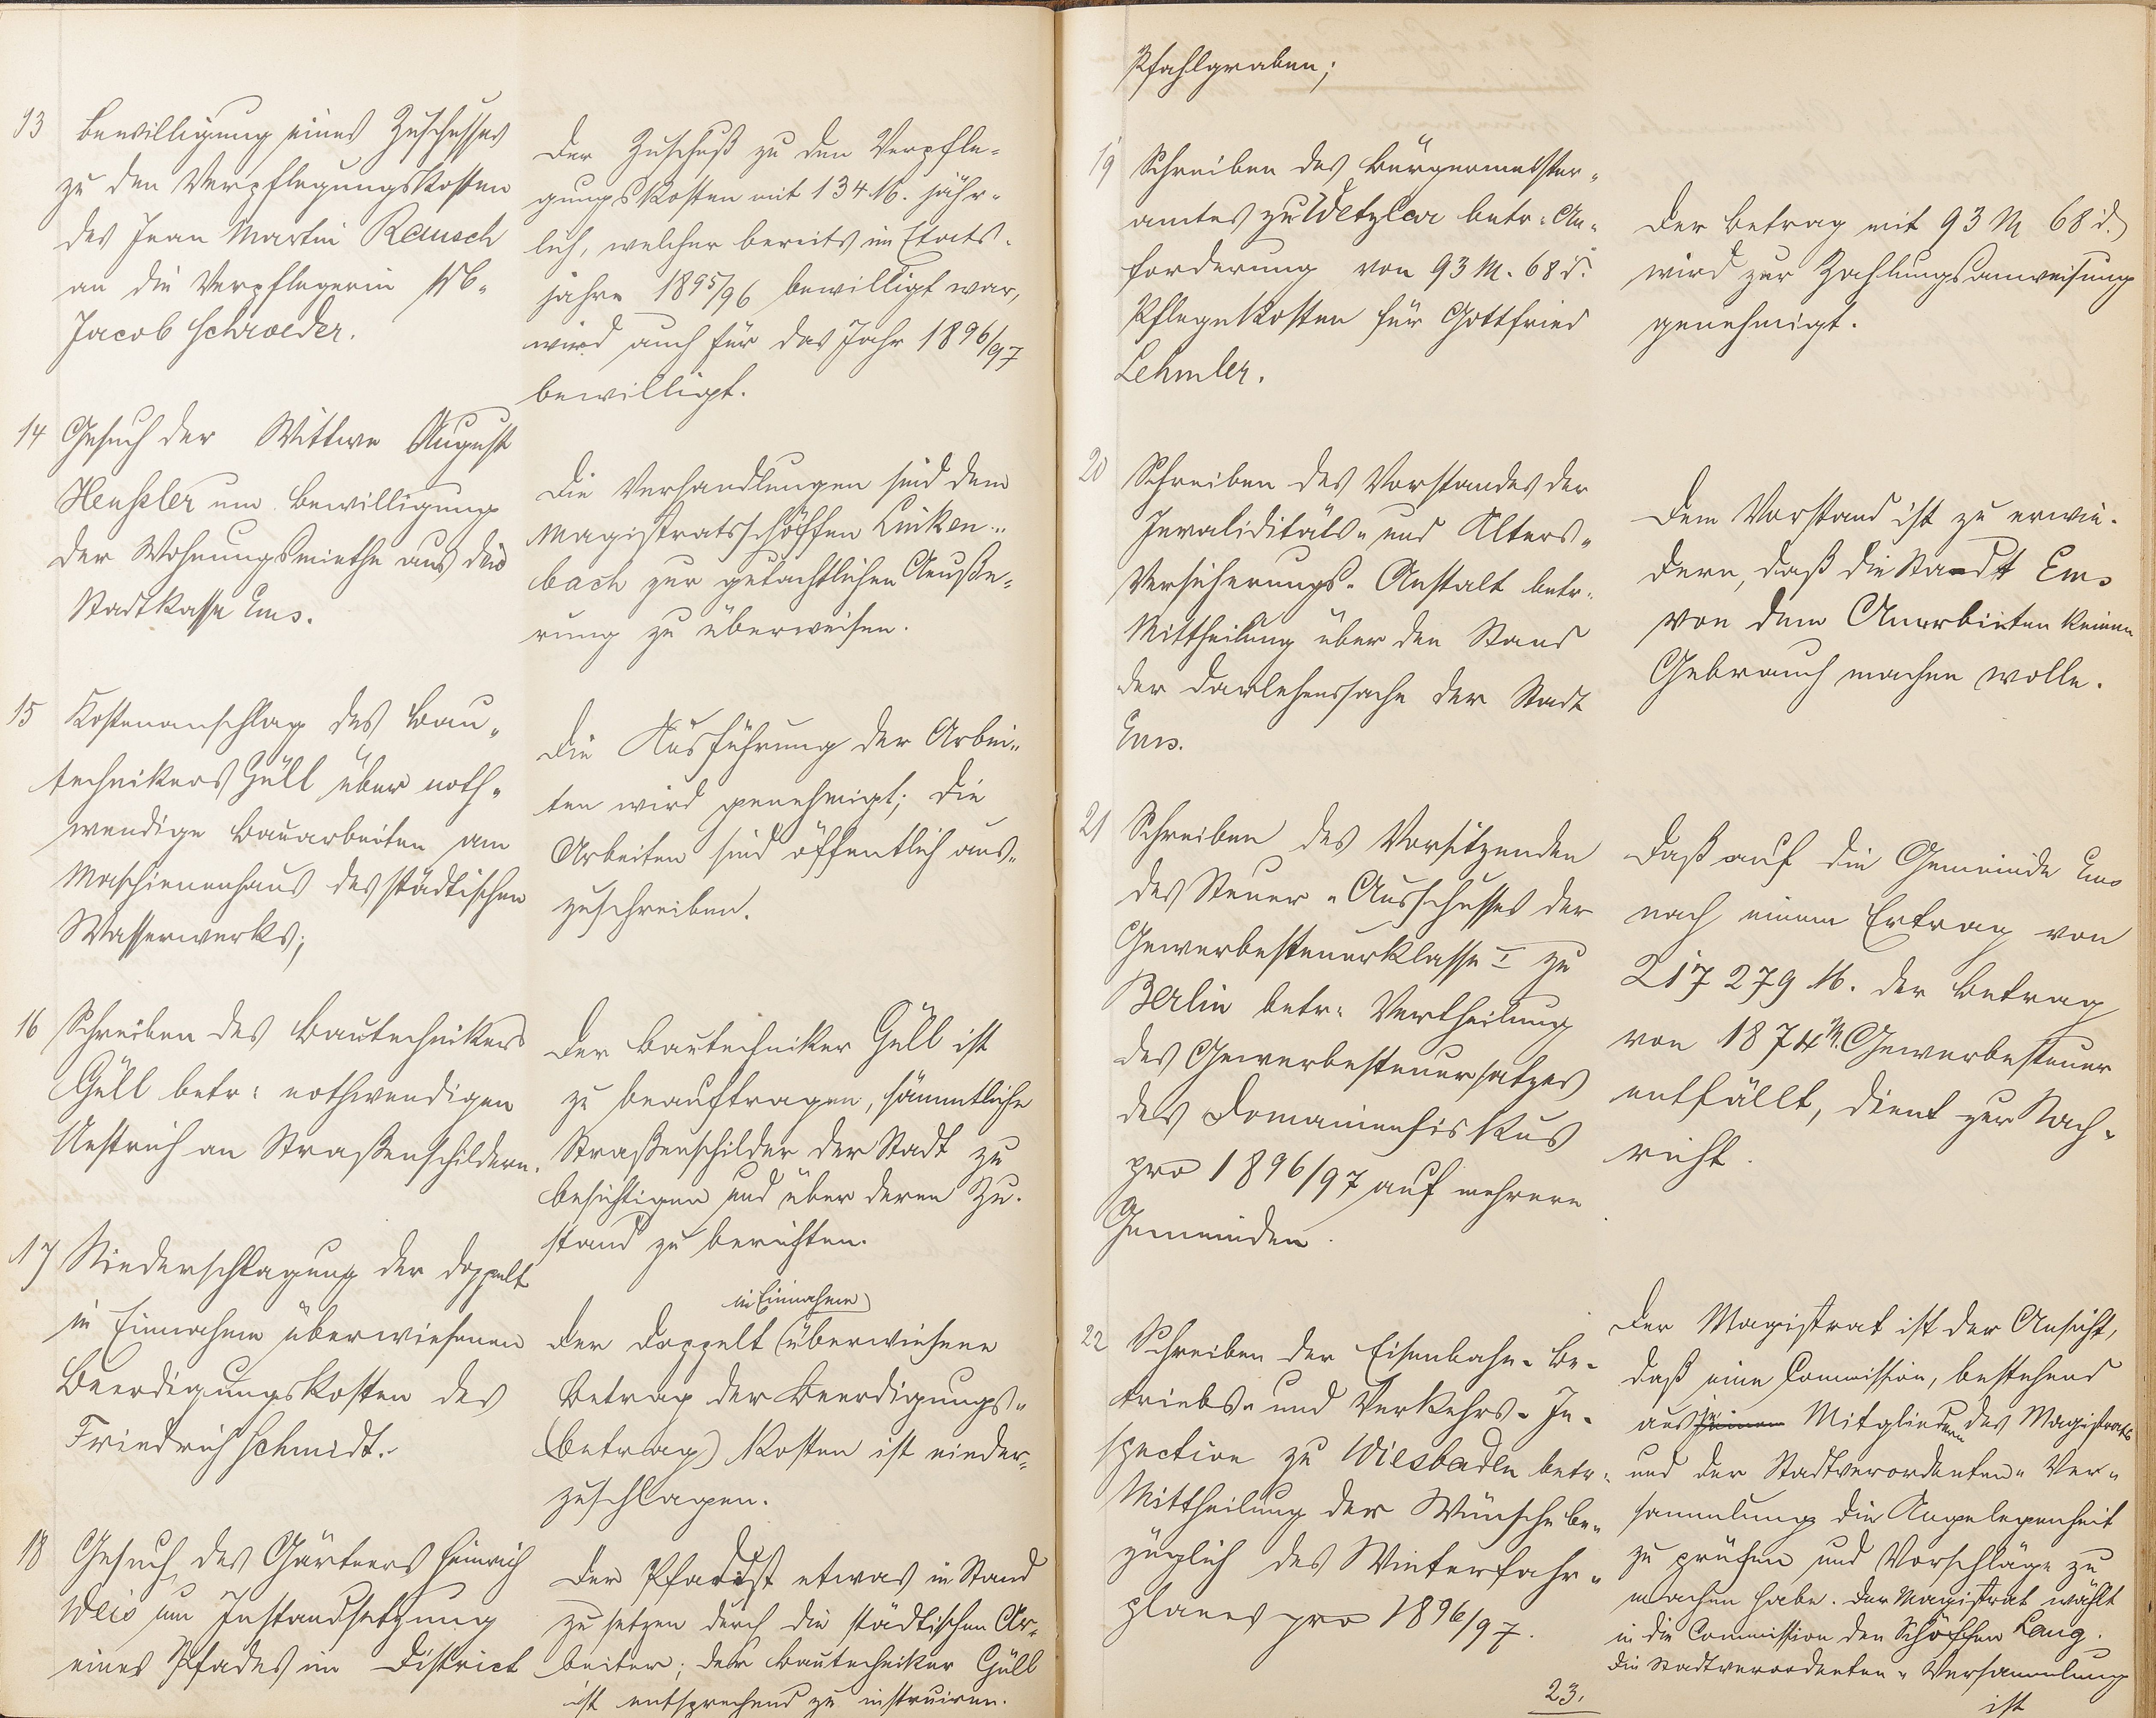 13 Bewilligung eines Zuschusses
zu den Verpflegungskosten
des Jean Martin Reusch
an die Verpflegerin
Jacob Schroeder.
Der Zuschuß zu den Verpfle-
gungskosten mit 134 M. jähr-
lich, welcher bereits im Etats-
jahre 1895/96 bewilligt war,
wird auch für das Jahr 1896/97
bewilligt.
14 Gesuch der Wittwe August
Henßler um Bewilligung
der Wohnungsmiethe aus der
Stadtkasse Ems.
Die Verhandlungen sind dem
Magistratsschöffen Linken-
bach zur gutachtlichen Aeuße-
rung zu überweisen.
15 Kostenanschlag des Bau-
technikers Güll über noth-
wendige Bauarbeiten am
Maschienenhaus des städtischen
Wasserwerks;
Die Ausführung der Arbei-
ten wird genehmigt; die
Arbeiten sind öffentlich aus-
zuschreiben.
16 Schreiben des Bautechnikers
Güll betr: nothwendigen
Anstrich an Straßenschildern.
Der Bautechniker Güll ist
zu beauftragen, sämmtliche
Straßenschilder der Stadt zu
besichtigen und über deren Zu-
stand zu berichten.
17 Niederschlagung der doppelt
in Einnahme überwiesenen
Beerdigungskosten des
Friedrich Schmidt.
in Einnahme
Der doppelt (überwiesene
Betrag der Beerdigungs-
(betrag) kosten ist nieder-
zuschlagen.
18 Gesuch des Gärtners Heinrich
Weis um Instandsetzung
eines Pfades im District
Der Pfad ist etwas in Stand
zu setzen durch die städtischen Ar-
beiter; der Bautechniker Güll
ist entsprechend zu instruiren.
Pfahlgraben;
19 Schreiben des Bürgermeister-
amtes zu Wetzlar betr: An-
forderung von 93 M. 68 d.
Pflegekosten für Gottfried
Lehmler.
Der Betrag mit 93 M 68 d.
wird zur Zahlungsanweisung
genehmigt.
20 Schreiben des Vorstandes der
Invaliditäts- und Alters-
Versicherungs-Anstalt betr.
Mittheilung über den Stand
der Darlehenssache der Stadt
Ems.
Dem Vorstand ist zu erwie-
dern, daß die Stadt Ems
von dem Anerbieten keinen
Gebrauch machen wolle.
21 Schreiben des Vorsitzenden
des Steuer-Ausschusses der
Gewerbesteuerklasse I zu
Berlin betr: Vertheilung
des Gewerbesteuersatzes
des Domainenfiskus
pro 1896/97 auf mehrere
Gemeinden.
Daß auf die Gemeinde Ems
nach einem Ertrag von
217 279 M. der Betrag
von 1874 M. Gewerbesteuer
entfällt, dient zur Nach-
richt.
22 Schreiben der Eisenbahn-Be-
triebs- und Verkehrs-In-
spection zu Wiesbaden betr:
Mittheilung der Wünsche be-
züglich des Winterfahr-
planes pro 1896/97.
Der Magistrat ist der Ansicht,
daß eine Commission, bestehend
aus Mitgliedern des Magistrats
und der Stadtverordneten-Ver-
sammlung die Angelegenheit
zu prüfen und Vorschläge zu
machen habe. Der Magistrat wählt
in die Commission den Schöffen Lang.
Die Stadtverordneten-Versammlung
ist
23.